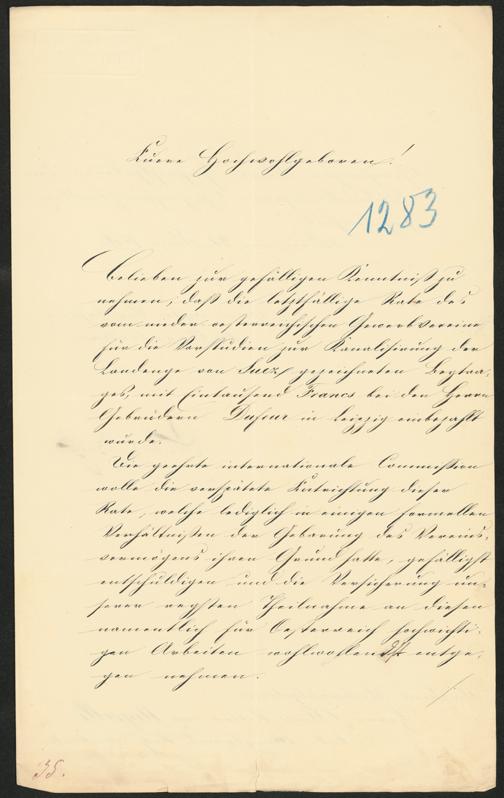 Euere Hochwohlgeboren!
1283
Belieben zur gefälligen Kenntniß zu
nehmen, daß die letztfällige Rate des
vom nieder oesterreichischen Gewerbvereine
für die Vorstudien zur Kanalisirung der
Landenge von Suez gezeichneten Beytra-
ges, mit Eintausend Francs bei den Herrn
Gebrüdern Dufour in Leipzig einbezahlt
wurde.
Die geehrte internationale Commission
wolle die verspätete Entrichtung dieser
Rate, welche lediglich in einigen formellen
Verhältnißen der Gebarung des Vereins-
vermögens ihren Grund hatte, gefälligst
entschuldigen und die Versicherung un-
serer regsten Theilnahme an diesen
namentlich für Oesterreich hochwichti-
gen Arbeiten wohlwollendst entge-
gen nehmen.
35.